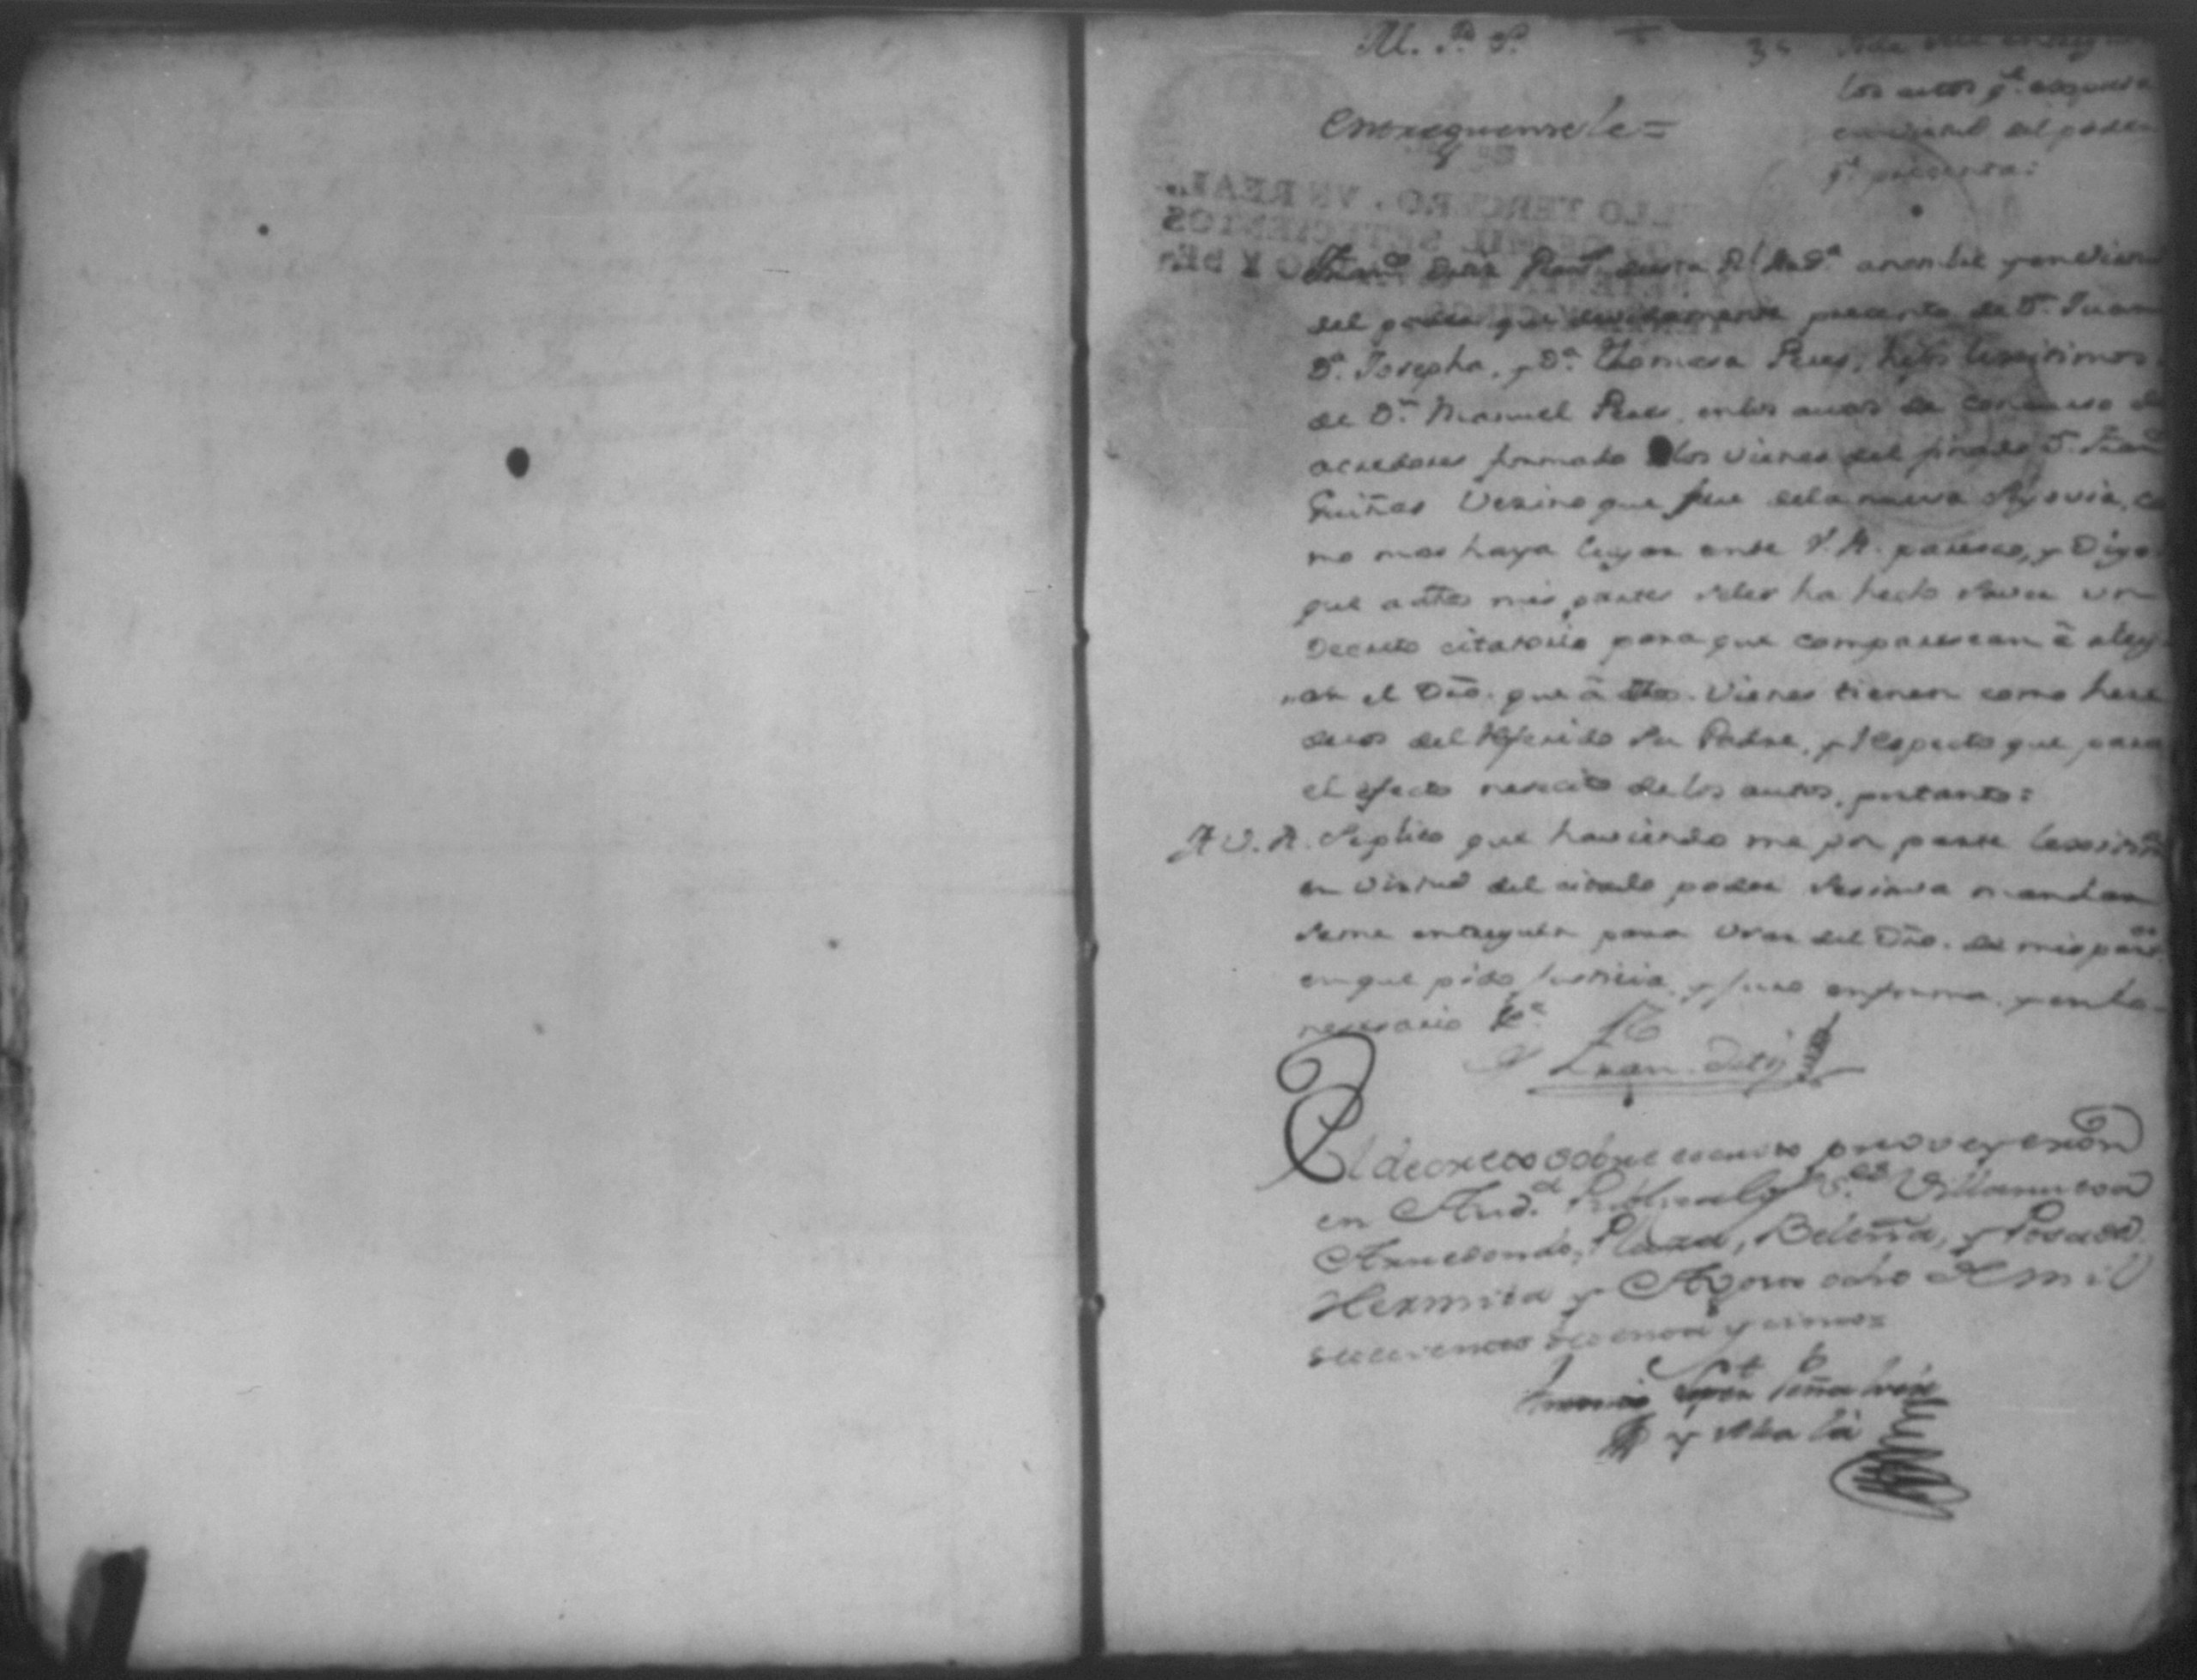 M. P. S.
35
los autos q.e expresa
en virtud del poder
q.e presenta:
Entreguensele =
LLO TERCERO, VN REAL,
MIL SETECIENTOS
Fran.co Proc.r desta R.l Aud.a a nombre y en virtud
del poder que devidamente presento de D.n Juan
D.a Josepha, y D.a Thomasa Peres, hijos lexitimos
de D.n Manuel Peres, en los autos de concurso de
acredores formado los vienes del finado D.n Fran.co
Guiñas Vezino que fue de la nueva Segovia, co
mo mas haya lugar ante V. A. paresco, y Digo:
que a dhas mis partes seles ha hecho saver un
Decreto citatorio para que comparescan â aleg
ar el Dro. que â dhos. Vienes tienen como here
deros del referido su Padre, y respecto que para
el efecto nesecito de los autos, portanto:
A V. A. Suplico que haviendome por parte lexitima
en virtud del citado poder se sirva mandar
seme entreguen para usar del Dro. de mis part.es
en que pido Justicia, y juro en forma, y en lo
nesesario &.a
Fran.
El decreto sobre escrito proveyeron
en Aud.a Publica los S.res Villanueva
Arredondo, Plaza, Beleña, y Posada.
Hermita y Agosto ocho de mil
setecientos ochenta y cinco =
Antonio Peñalver
y Alcalá